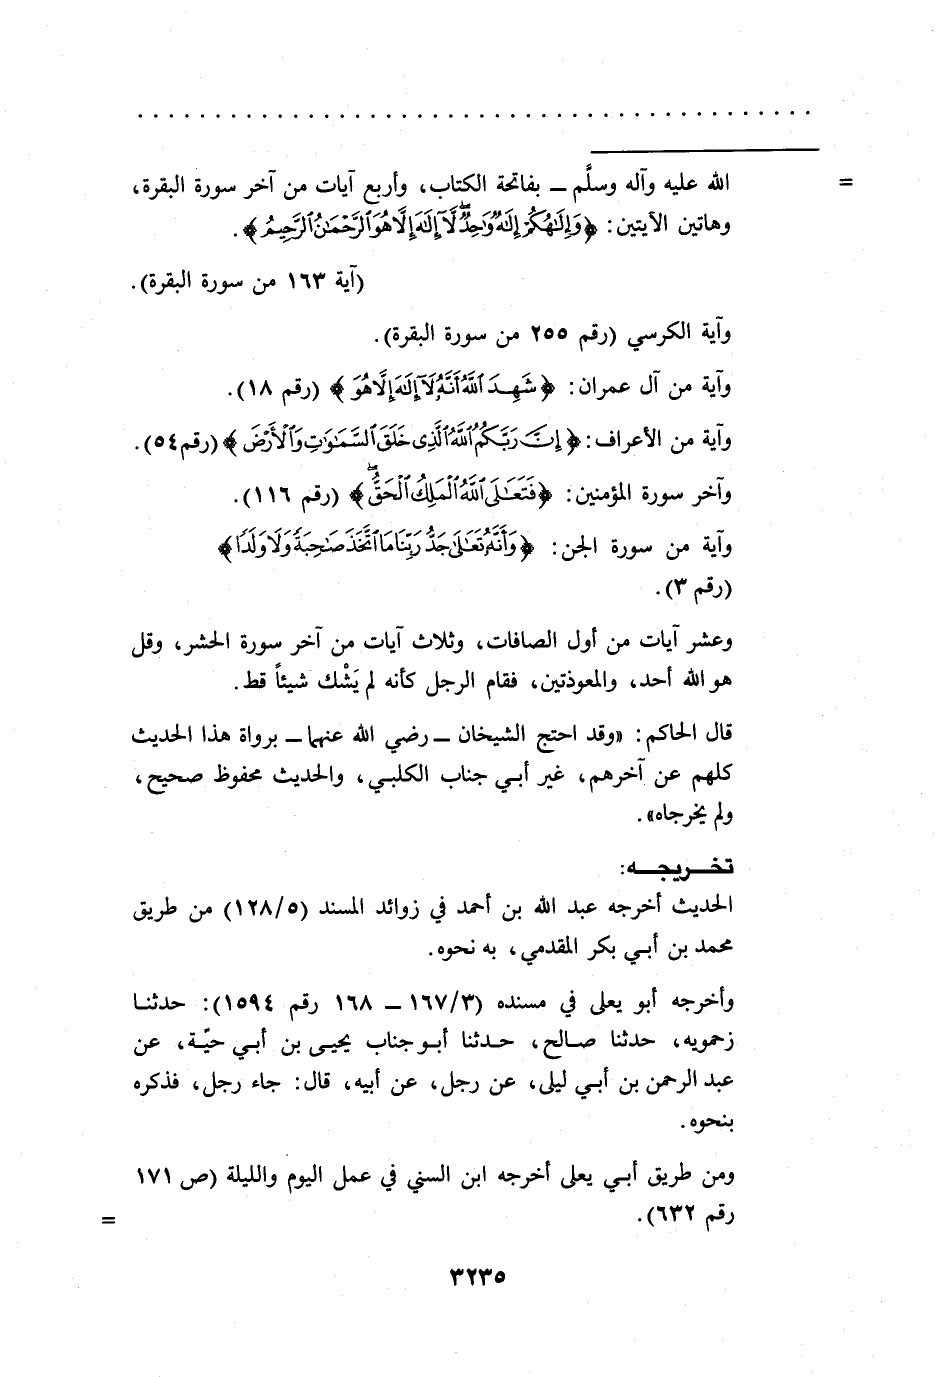 . . . . . . . . . . . . . . . . . . . . . . . . . . . . . . . . . . . . . . . . . . . .
= الله عليه وآله وسلَّم ــ بفاتحة الكتاب، وأربع آيات من آخر سورة البقرة،
وهاتين الآيتين: ﴿وَإِلَٰهُكُمْ إِلَٰهٌ وَٰحِدٌ ۖ لَّآ إِلَٰهَ إِلَّا هُوَ ٱلرَّحْمَٰنُ ٱلرَّحِيمُ﴾.
(آية ١٦٣ من سورة البقرة).
وآية الكرسي (رقم ٢٥٥ من سورة البقرة).
وآية من آل عمران: ﴿شَهِدَ ٱللَّهُ أَنَّهُۥ لَآ إِلَٰهَ إِلَّا هُوَ﴾ (رقم ١٨).
وآية من الأعراف: ﴿إِنَّ رَبَّكُمُ ٱللَّهُ ٱلَّذِى خَلَقَ ٱلسَّمَٰوَٰتِ وَٱلْأَرْضَ﴾ (رقم ٥٤).
وآخر سورة المؤمنين: ﴿فَتَعَٰلَى ٱللَّهُ ٱلْمَلِكُ ٱلْحَقُّ ۖ﴾ (رقم ١١٦).
وآية من سورة الجن: ﴿وَأَنَّهُۥ تَعَٰلَىٰ جَدُّ رَبِّنَا مَا ٱتَّخَذَ صَٰحِبَةً وَلَا وَلَدًا﴾
(رقم ٣).
وعشر آيات من أول الصافات، وثلاث آيات من آخر سورة الحشر، وقل
هو الله أحد، والمعوذتين، فقام الرجل كأنه لم يَشْك شيئاً قط.
قال الحاكم: «وقد احتج الشيخان ــ رضي الله عنهما ــ برواة هذا الحديث
كلهم عن آخرهم، غير أبي جناب الكلبي، والحديث محفوظ صحيح،
ولم يخرجاه».
تخريجه:
الحديث أخرجه عبد الله بن أحمد في زوائد المسند (١٢٨/٥) من طريق
محمد بن أبي بكر المقدمي، به نحوه.
وأخرجه أبو يعلى في مسنده (١٦٧/٣ ــ ١٦٨ رقم ١٥٩٤): حدثنا
زحمويه، حدثنا صالح، حدثنا أبو جناب يحيى بن أبي حيّة، عن
عبد الرحمن بن أبي ليلى، عن رجل، عن أبيه، قال: جاء رجل، فذكره
بنحوه.
ومن طريق أبي يعلى أخرجه ابن السني في عمل اليوم والليلة (ص ١٧١
رقم ٦٣٢). =
٣٢٣٥